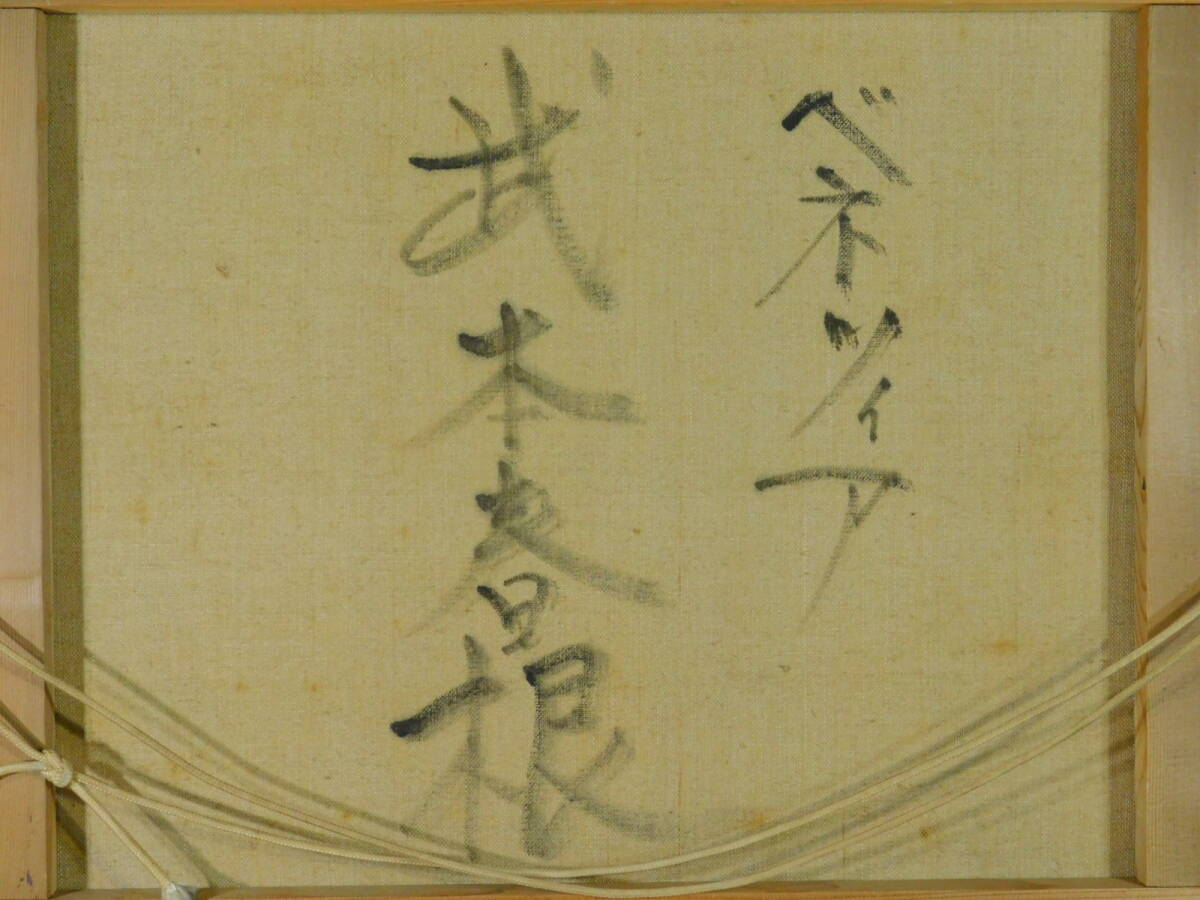 ベネツィア
武本春根